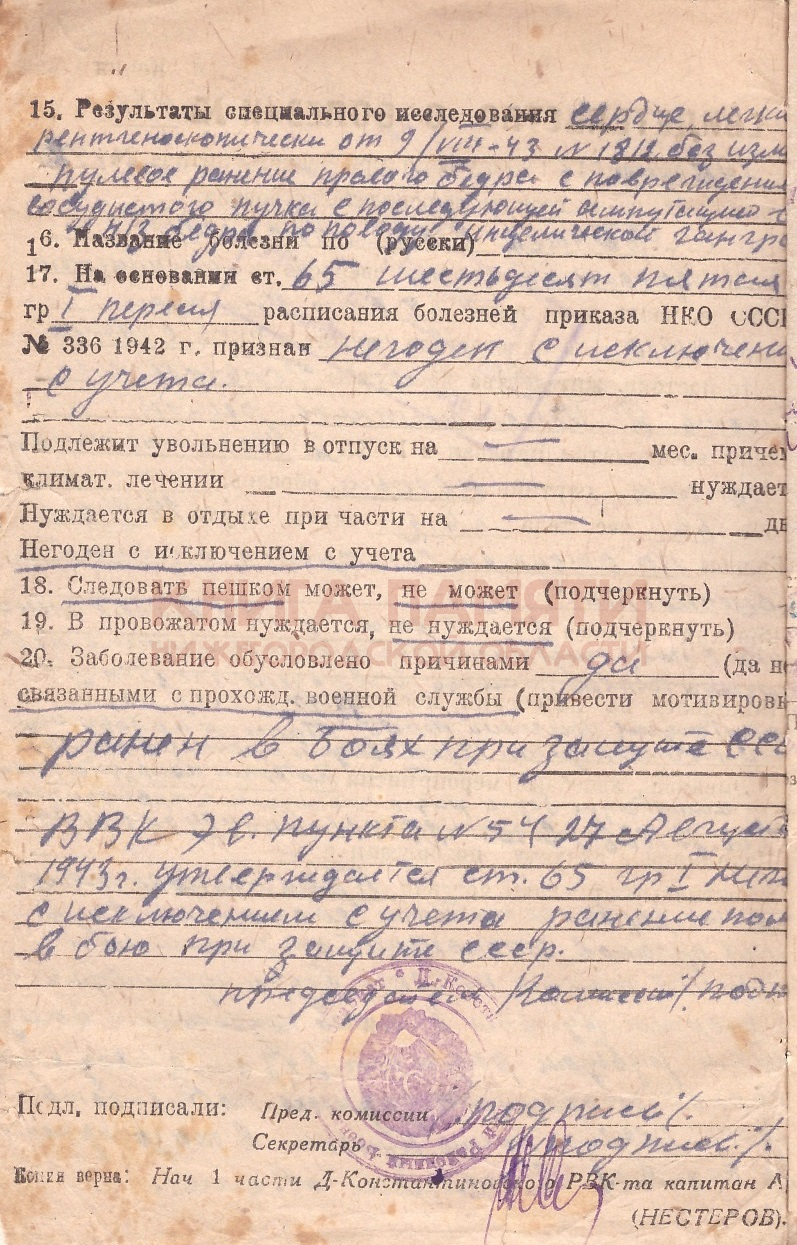 15. Результаты специального исследования сердце, легки
рентгеноскопически от 9/VIII-43 N 1812 без изм
пулевое ранение правого бедра с повреждением
сосудистого пучка с последующей ампутацией
бедра по поводу гангр
16. Название болезни по (русски)
17. На основании ст. 65 шестьдесят пятая
гр I первая расписания болезней приказа НКО СССР
№ 336 1942 г. признан негоден с исключени
с учета.
Подлежит увольнению в отпуск на — мес. причем
климат. лечении — нуждает
Нуждается в отдыхе при части на — дн
Негоден с исключением с учета
18. Следовать пешком может, не может (подчеркнуть)
КНИГА ПАМЯТИ
19. В провожатом нуждается, не нуждается (подчеркнуть)
НИЖЕГОРОДСКОЙ ОБЛАСТИ
20. Заболевание обусловлено причинами да (да не
связанными с прохожд. военной службы (привести мотивировк
ранен в боях при защите ССС
ВВК Эв. пункта N 54 27 Август
1943 г. утверждается ст. 65 гр I Нег
с исключением с учета ранение пол
в бою при защите СССР.
председатель /подп
Подл. подписали: Пред. комиссии /подпись/.
Секретарь /подпись/.
Копия верна: Нач 1 части Д-Константиновского РВК-та капитан А
(НЕСТЕРОВ).